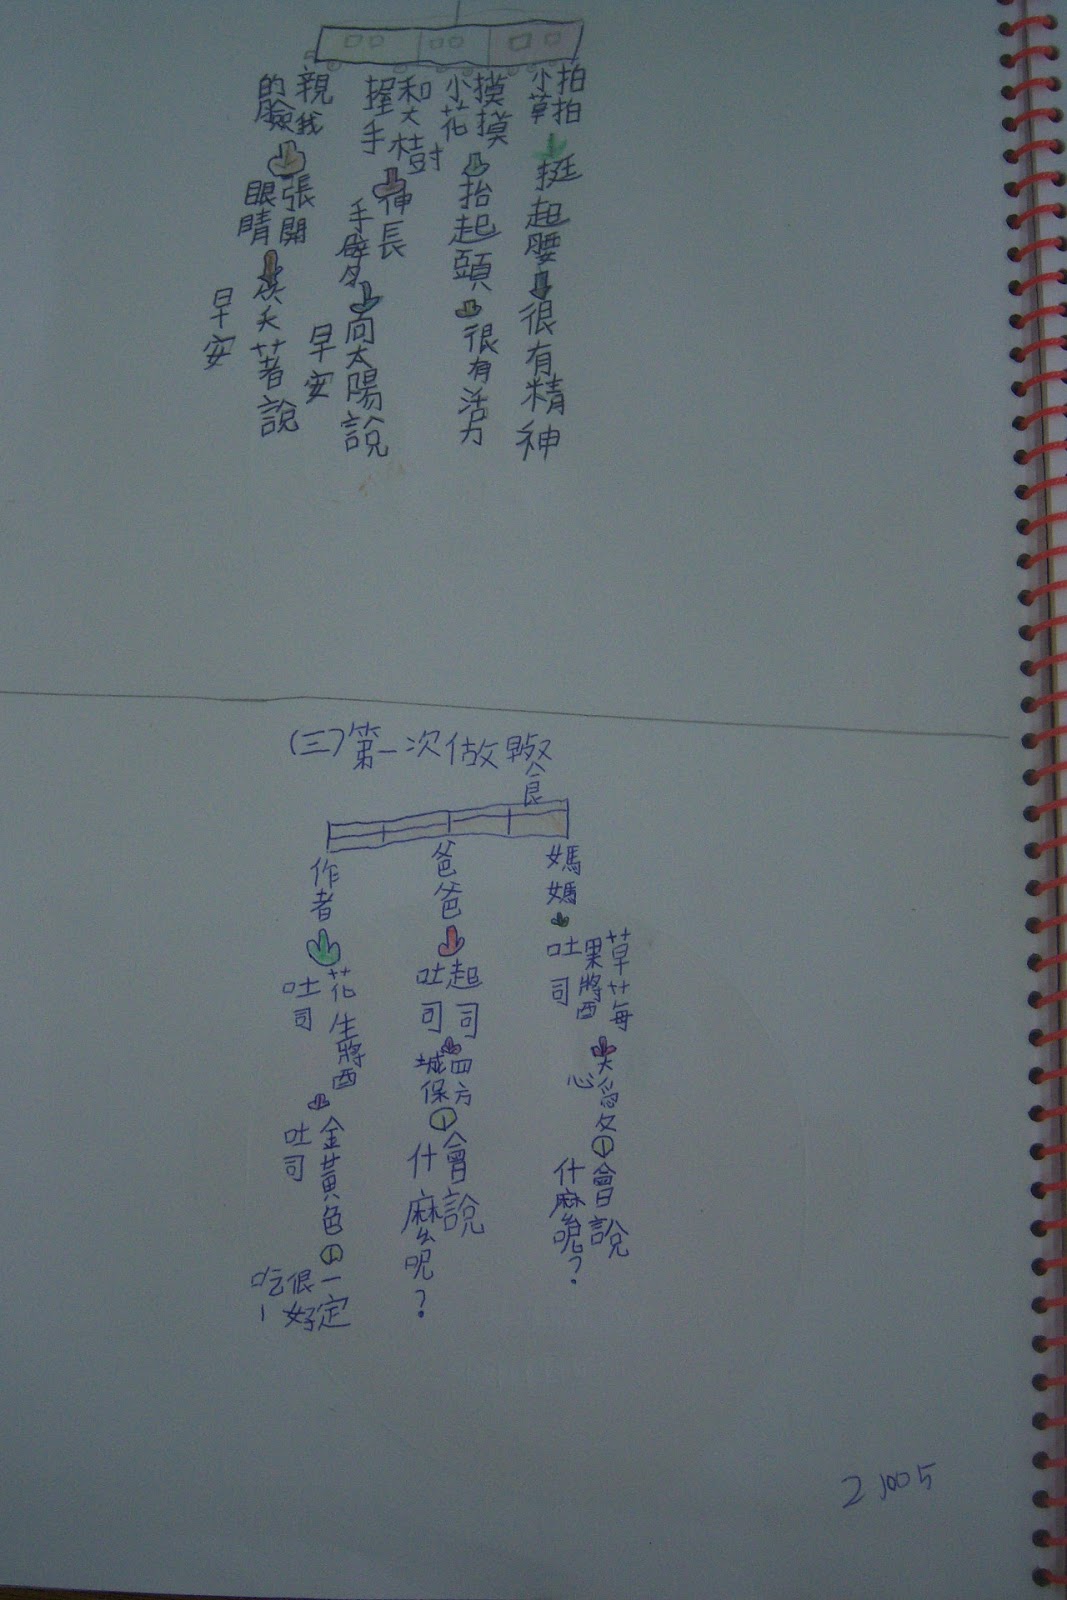 拍拍
小草
挺起腰
很有精神
摸摸
小花
抬起頭
很有活力
和大樹
握手
伸長
手臂
向太陽說
早安
親我
的臉
張開
眼睛
笑著說
早安
(三)第一次做早餐
媽媽
草莓
果醬
吐司
大
心
會說
什麼呢？
爸爸
起司
吐司
四方
城保
會說
什麼呢？
作者
花生醬
吐司
金黃色
吐司
一定
很好
吃！
21005